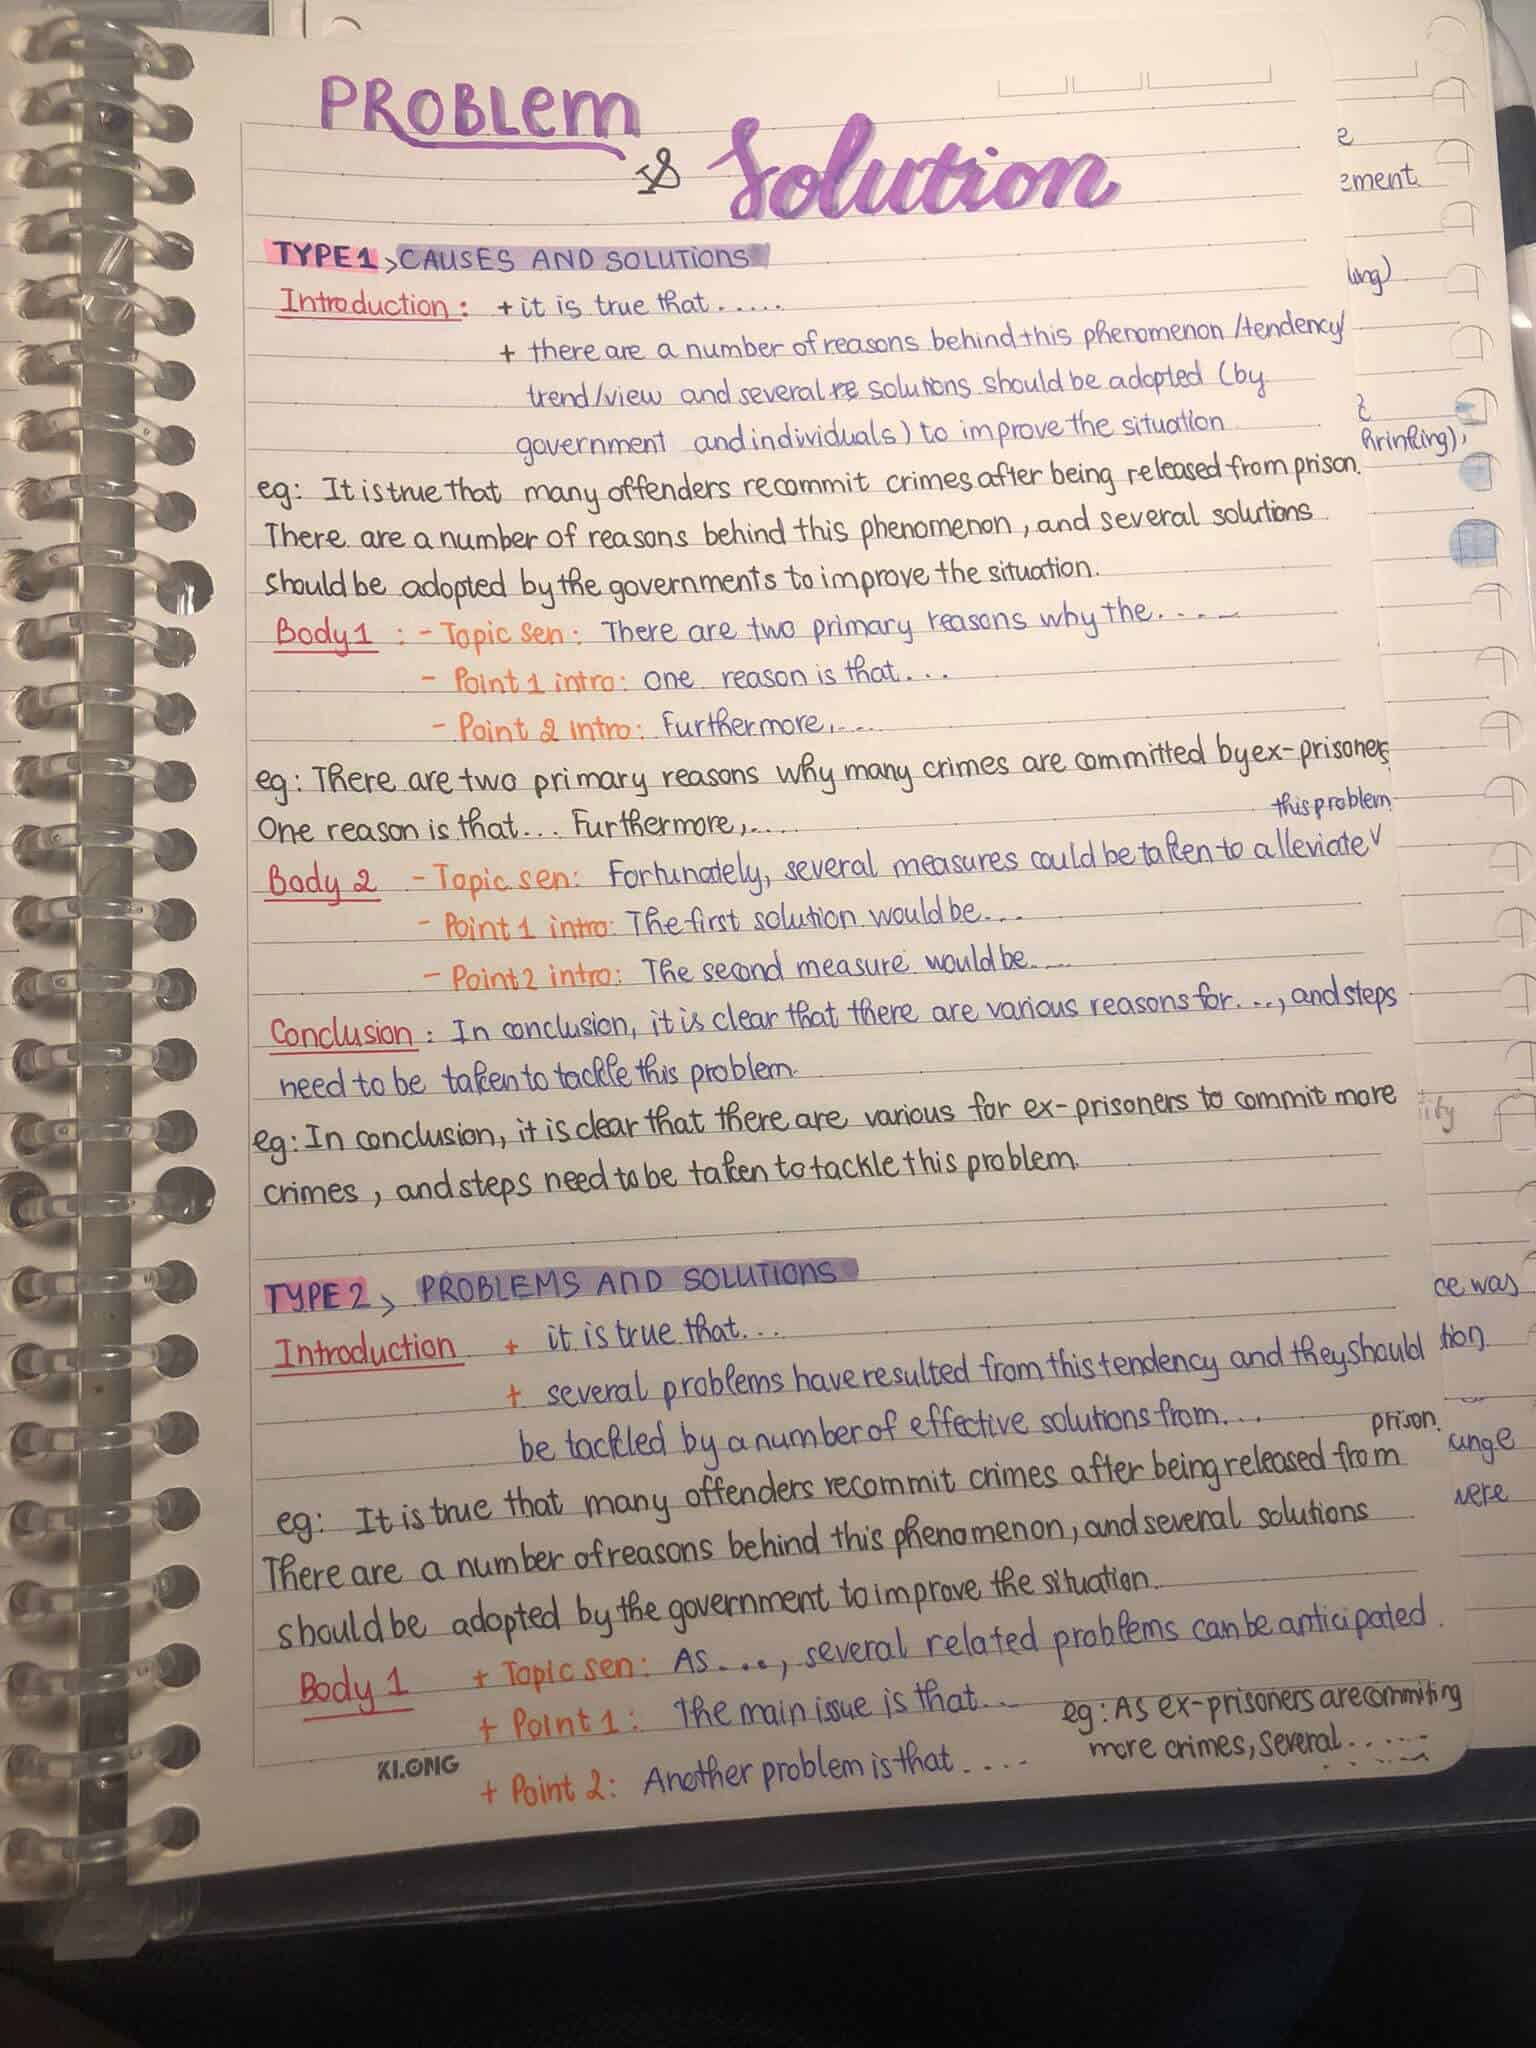 PROBLEM
& Solution
TYPE 1 > CAUSES AND SOLUTIONS
Introduction: + it is true that.....
+ there are a number of reasons behind this phenomenon /tendency/
trend/view and several re solutions should be adopted (by
government and individuals) to improve the situation
eg: It is true that many offenders recommit crimes after being released from prison.
There are a number of reasons behind this phenomenon, and several solutions
should be adopted by the governments to improve the situation.
Body 1 : - Topic sen: There are two primary reasons why the.....
- Point 1 intro: One reason is that...
- Point 2 intro: Furthermore,....
eg: There are two primary reasons why many crimes are committed by ex-prisoners
One reason is that... Furthermore,....
this problem
Body 2 - Topic sen: Fortunately, several measures could be taken to alleviate v
- Point 1 intro: The first solution would be...
- Point 2 intro: The second measure would be....
Conclusion: In conclusion, it is clear that there are various reasons for..., and steps
need to be taken to tackle this problem.
eg: In conclusion, it is clear that there are various for ex-prisoners to commit more
crimes, and steps need to be taken to tackle this problem.
TYPE 2 > PROBLEMS AND SOLUTIONS
Introduction + it is true that...
+ several problems have resulted from this tendency and they should
be tackled by a number of effective solutions from...
prison.
eg: It is true that many offenders recommit crimes after being released from
There are a number of reasons behind this phenomenon, and several solutions
should be adopted by the government to improve the situation.
Body 1 + Topic sen: As...., several related problems can be anticipated.
+ Point 1: The main issue is that...
eg: As ex-prisoners are commiting
more crimes, several......
+ Point 2: Another problem is that....
KI.ONG
e
ement
ung)
hrinking),
ity
ce was
tion
ange
were